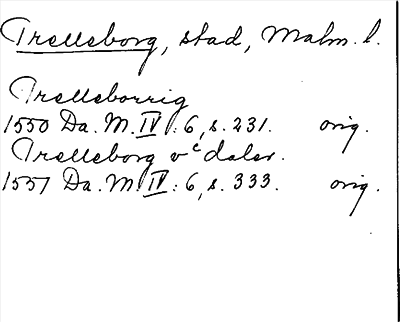 Trelleborg, stad, Malm. l.
Trelleborrig
1550 Da. M. IV : 6, s. 231. orig.
Trelleborg v daler.
1557 Da. M. IV : 6, s. 333. orig.